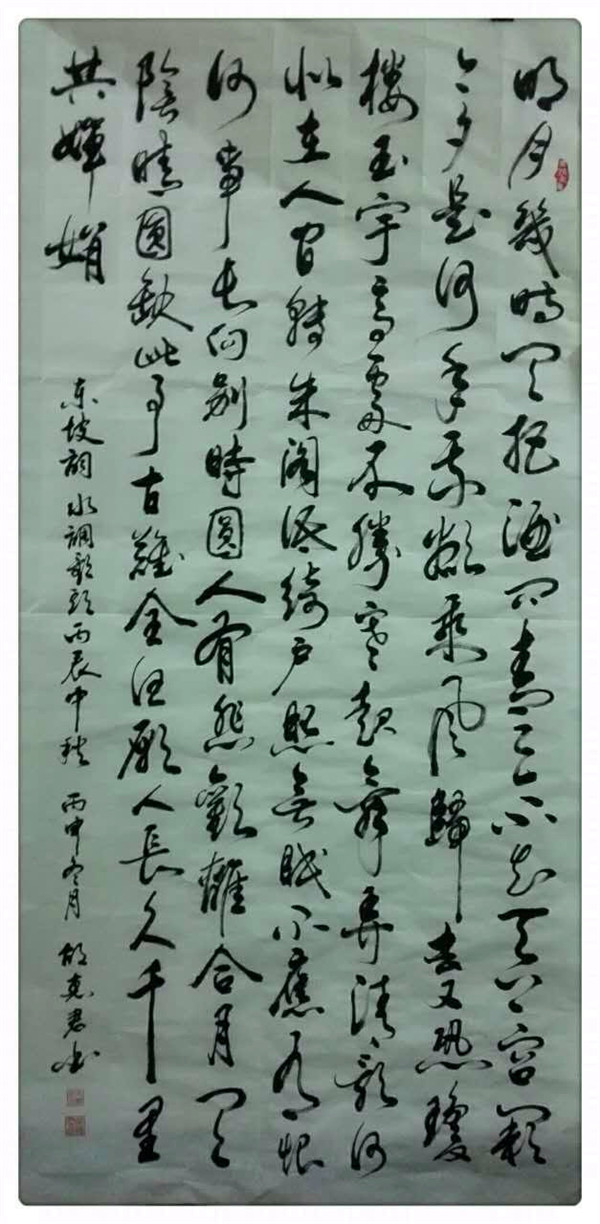 明月幾時有把酒問青天不知天上宮闕
今夕是何年我欲乘風歸去又恐瓊
樓玉宇高處不勝寒起舞弄清影何
似在人間轉朱閣低綺戶照無眠不應有恨
何事長向別時圓人有悲歡離合月有
陰晴圓缺此事古難全但願人長久千里
共嬋娟
东坡詞水調歌頭丙辰中秋 丙申冬月 胡克君书